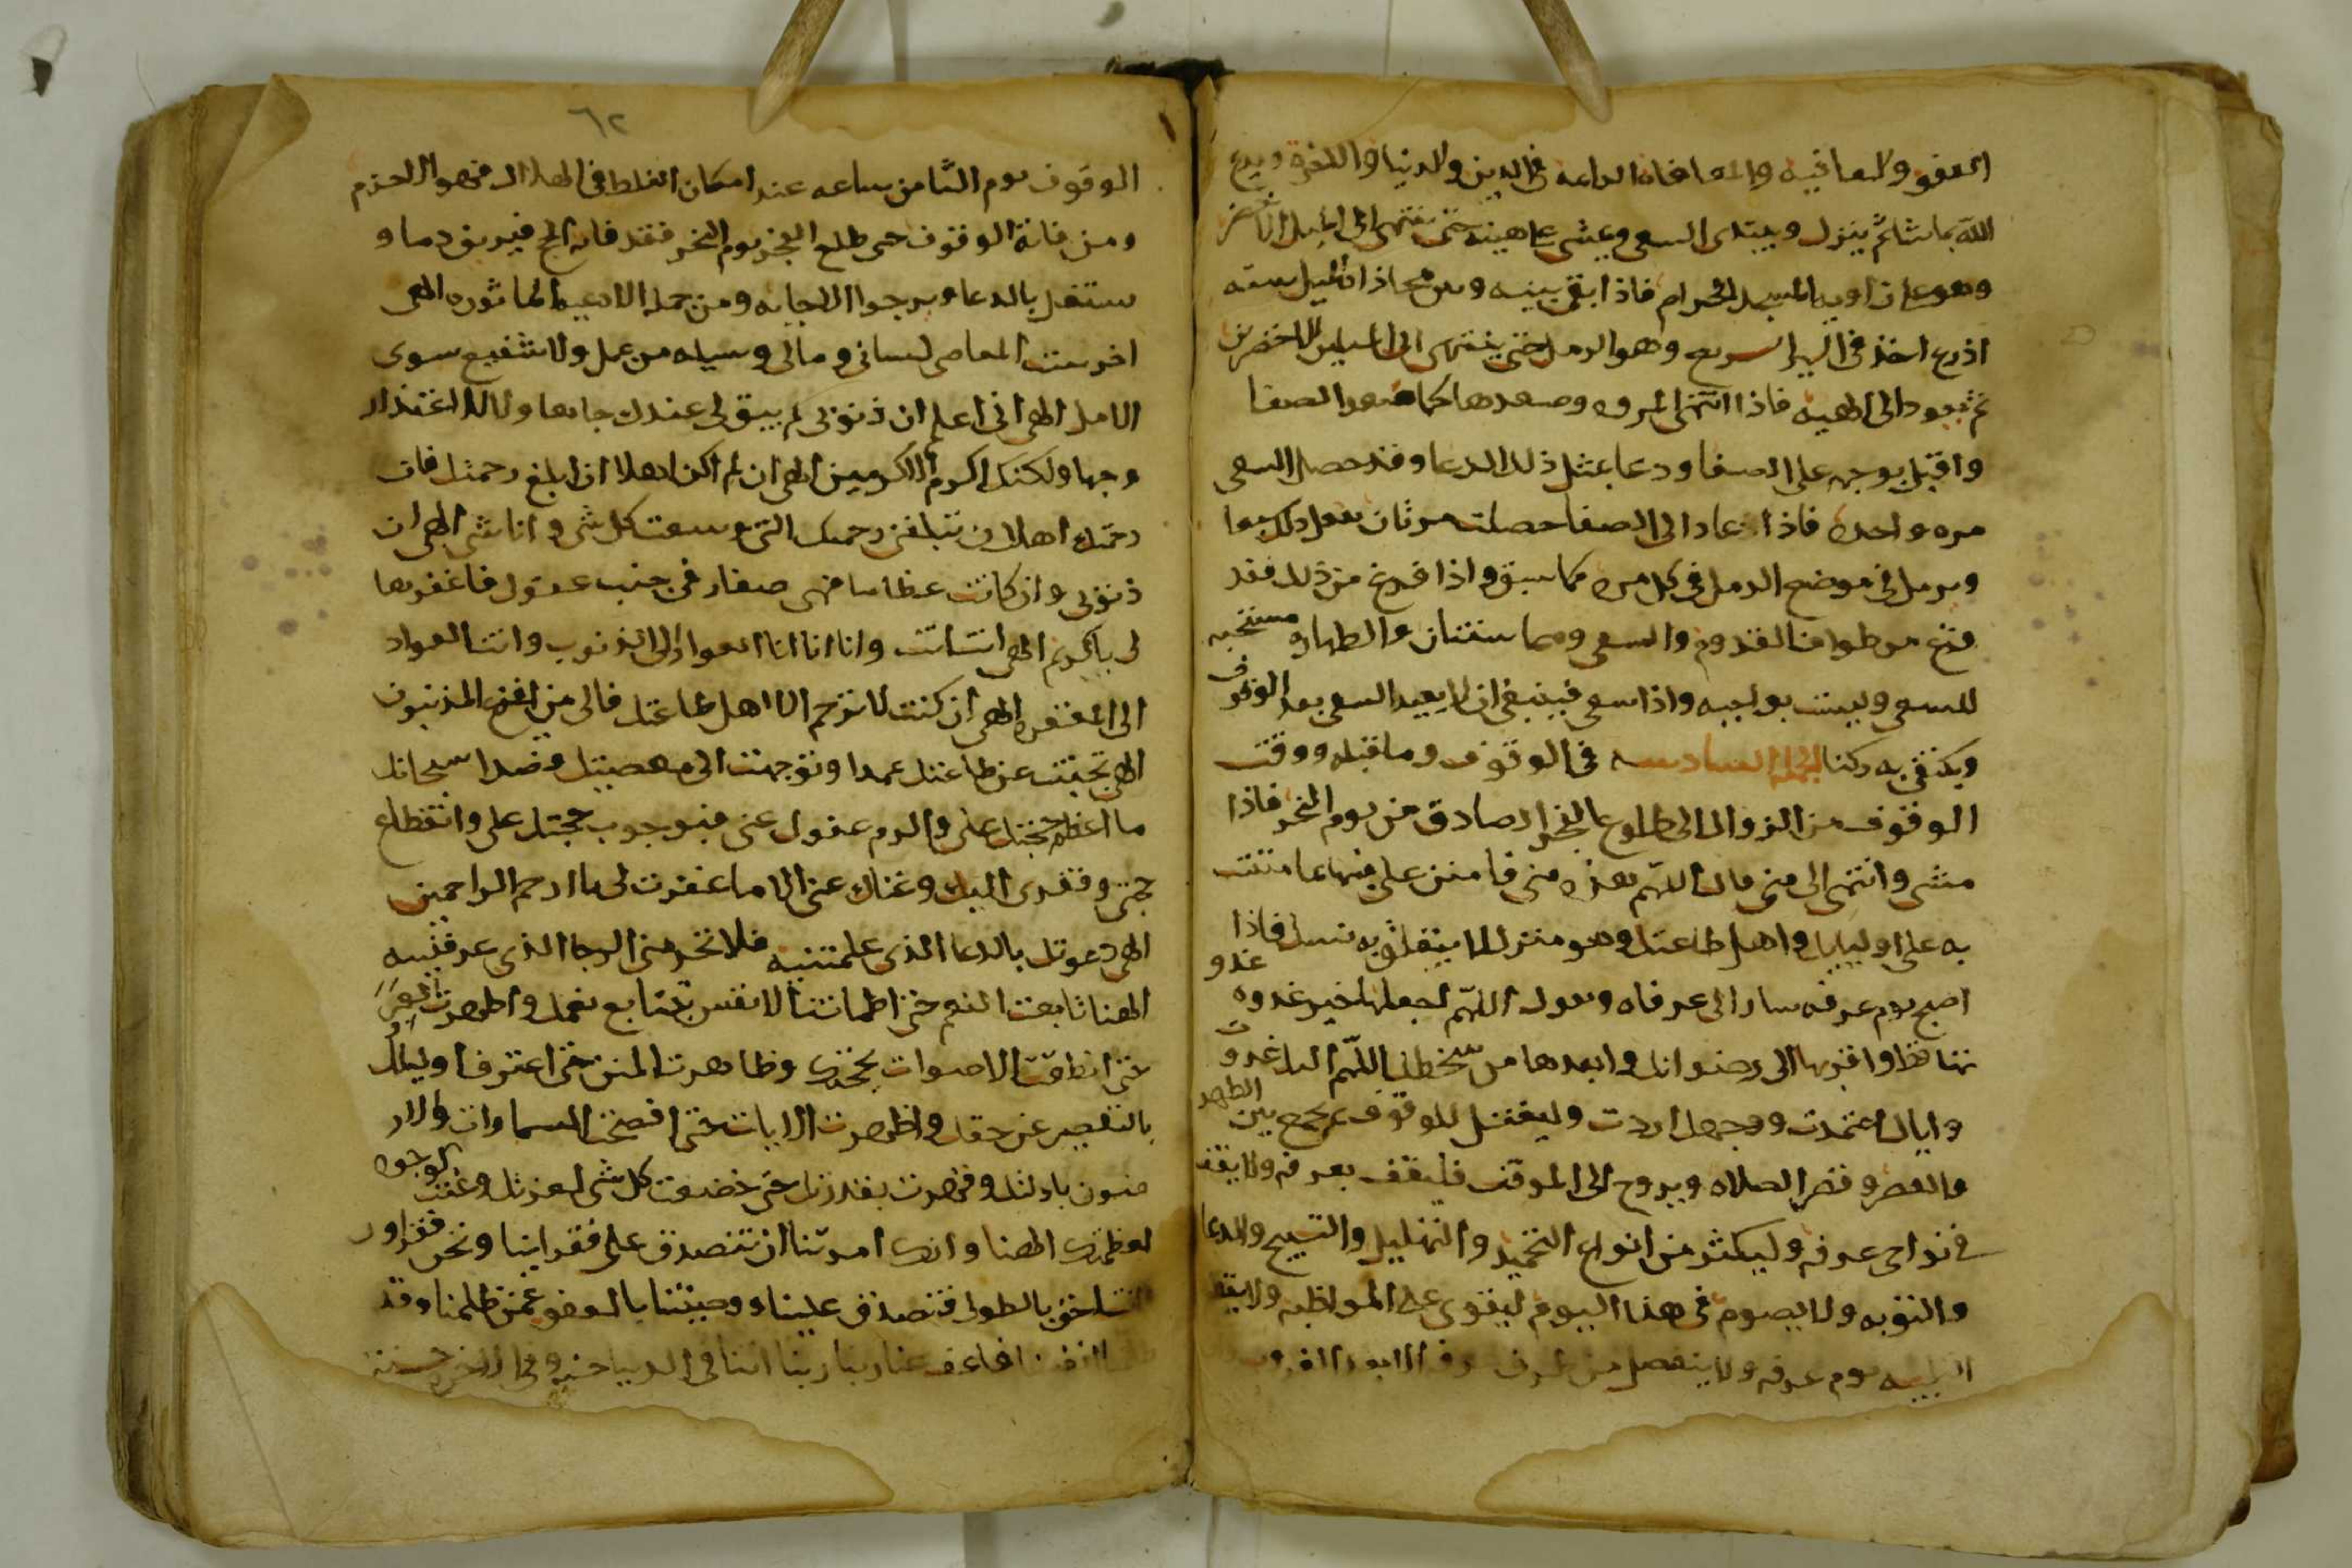 العفو والعافيه والمعافاه الدايمه في الدين والدنيا والاخره ويدع
الله بما شا ثم ينزل ويبتدى السعى ويمشى على هينه حتى ينتهى الى الميل الاخضر
وهو على زاويه المسجد الحرام فاذا بقى بينه وبين محاذاه الميل سته
اذرع اخذ في السير السريع وهو الرمل حتى ينتهى الى الميلين الاخضرين
ثم يعود الى الهينه فاذا انتهى المروه وصعدها كما صعد الصفا
واقبل بوجهه على الصفا ودعا بمثل ذلك الدعا وقد حصل السعى
مره واحده فاذا عاد الى الصفا حصلت مرتان يفعل ذلك سبعا
ويرمل في موضع الرمل في كل مره كما سبق واذا فرغ من ذلك فقد
فرغ من طواف القدوم والسعى وهما سنتان والطهاره مستحبه
للسعى وليست بواجبه واذا سعى فينبغى ان لا يعيد السعى بعد الوقوف
ويكتفى به ركنا الجمله السادسه في الوقوف وما قبله ووقت
الوقوف من الزوال الى طلوع الفجر الصادق من يوم النحر فاذا
مشى وانتهى الى منى قال اللهم هذه منى فامنن على فيها بما مننت
به على اوليايك واهل طاعتك وهو منزل لا يتعلق به نسك فاذا
اصبح يوم عرفه سار الى عرفاه ويقول اللهم اجعلها خير غدوه غدو
تها قط واقربها الى رضوانك وابعدها من سخطك اللهم اليك غدوت
واياك اعتمدت ووجهك اردت وليغتسل للوقوف ثم يجمع بين الظهر
والعصر وقصر الصلاه ويروح الى الموقف فليقف بعرفه ولا يقف
في نواحى عرفه وليكثر من انواع التحميد والتهليل والتسبيح والدعا
والتوبه ولا يصوم في هذا اليوم ليقوى على المواظبه ولا يقطع
التلبيه يوم عرفه ولا ينفصل من طرف عرفه الا بعد الغروب
٦٢
الوقوف يوم الثامن ساعه عند امكان الغلط في الهلال فهو الحزم
ومن فاته الوقوف حى طلع الفجر يوم النحر فقد فاته الحج فيريق دما و
ستغل بالدعا ويرجوا الاجابه ومن جمله الادعيه الماثوره الهى
اخرست المعاصى لسانى ومالى وسيله من عمل ولا شفيع سوى
الامل الهى انى اعلم ان ذنوبى لم يبق لى عندك جاها ولا للاعتذار
وجها ولكنك اكرم الاكرمين الهى ان لم اكن اهلا ان ابلغ رحمتك فان
رحمتك اهلا ان تبلغنى رحمتك التى وسعت كل شى وانا شى الهى ان
ذنوبى وان كانت عظاما فهى صغار في جنب عفوك فاغفرها
لى يا كريم الهى انت انت وانا انا انا العواد الى الذنوب وانت العواد
الى المغفره الهى ان كنت لا ترحم الا اهل طاعتك فالى من يفزع المذنبون
الهى تجنبت عن طاعتك عمدا وتوجهت الى معصيتك قصدا سبحانك
ما اعظم حجتك على واكرم عفوك عنى فبوجوب حجتك على وانقطاع
حجتى وفقرى اليك وغناك عنى الا ما غفرت لى يا ارحم الراحمين
الهى دعوتك بالدعا الذى علمتنيه فلا تحرمنى الرجا الذى عرفتنيه
الهنا تابعت النعم حتى اطمانت الانفس بتتابع نعمك واظهرت العبر
حتى انطقت الاصوات بحجتك وظاهرت المنن حتى اعترف اوليايك
بالتقصير عن حقك واظهرت الايات حتى افصحت السماوات والار
ضون بادلتك وقهرت بقدرتك حتى خضعت كل شى لعزتك وعنت الوجوه
لعظمتك الهنا وانك امرتنا ان نتصدق على فقراينا ونحن فقراوك
انت احق بالطول فتصدق علينا ووصيتنا بالعفو عمن ظلمنا وقد
ظلمنا انفسنا فاعف عنا ربنا ربنا اتنا في الدنيا حسنه وفي الاخره حسنه